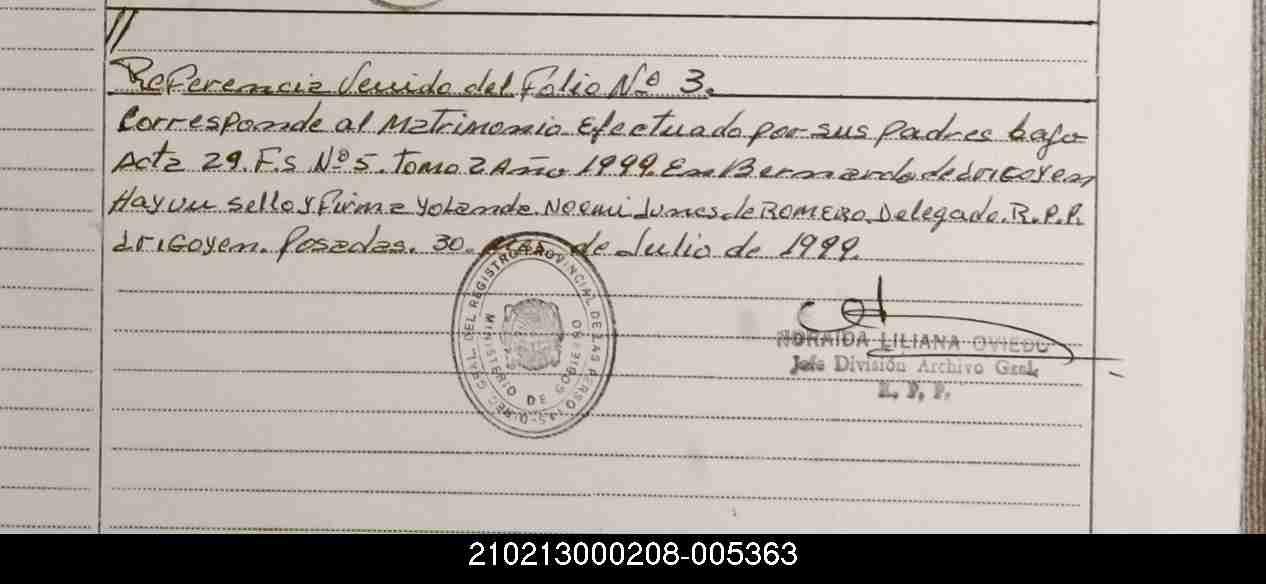 //
Referencia Venida del Folio Nº 3.
Corresponde al Matrimonio Efectuado por sus padres bajo
Acta 29. F.S. Nº 5. Tomo 2 Año 1999. En Bernardo de Irigoyen
Hay un sello y firma Yolanda Noemi Junes de ROMERO Delegada. R.P.P.
Irigoyen. Posadas. 30. de Julio de 1999.
DIREC. GRAL. DEL REGISTRO PROVINCIAL DE LAS PERSONAS
MINISTERIO DE GOBIERNO
NORAIDA LILIANA OVIEDO
Jefe División Archivo Gral.
R. P. P.
210213000208-005363